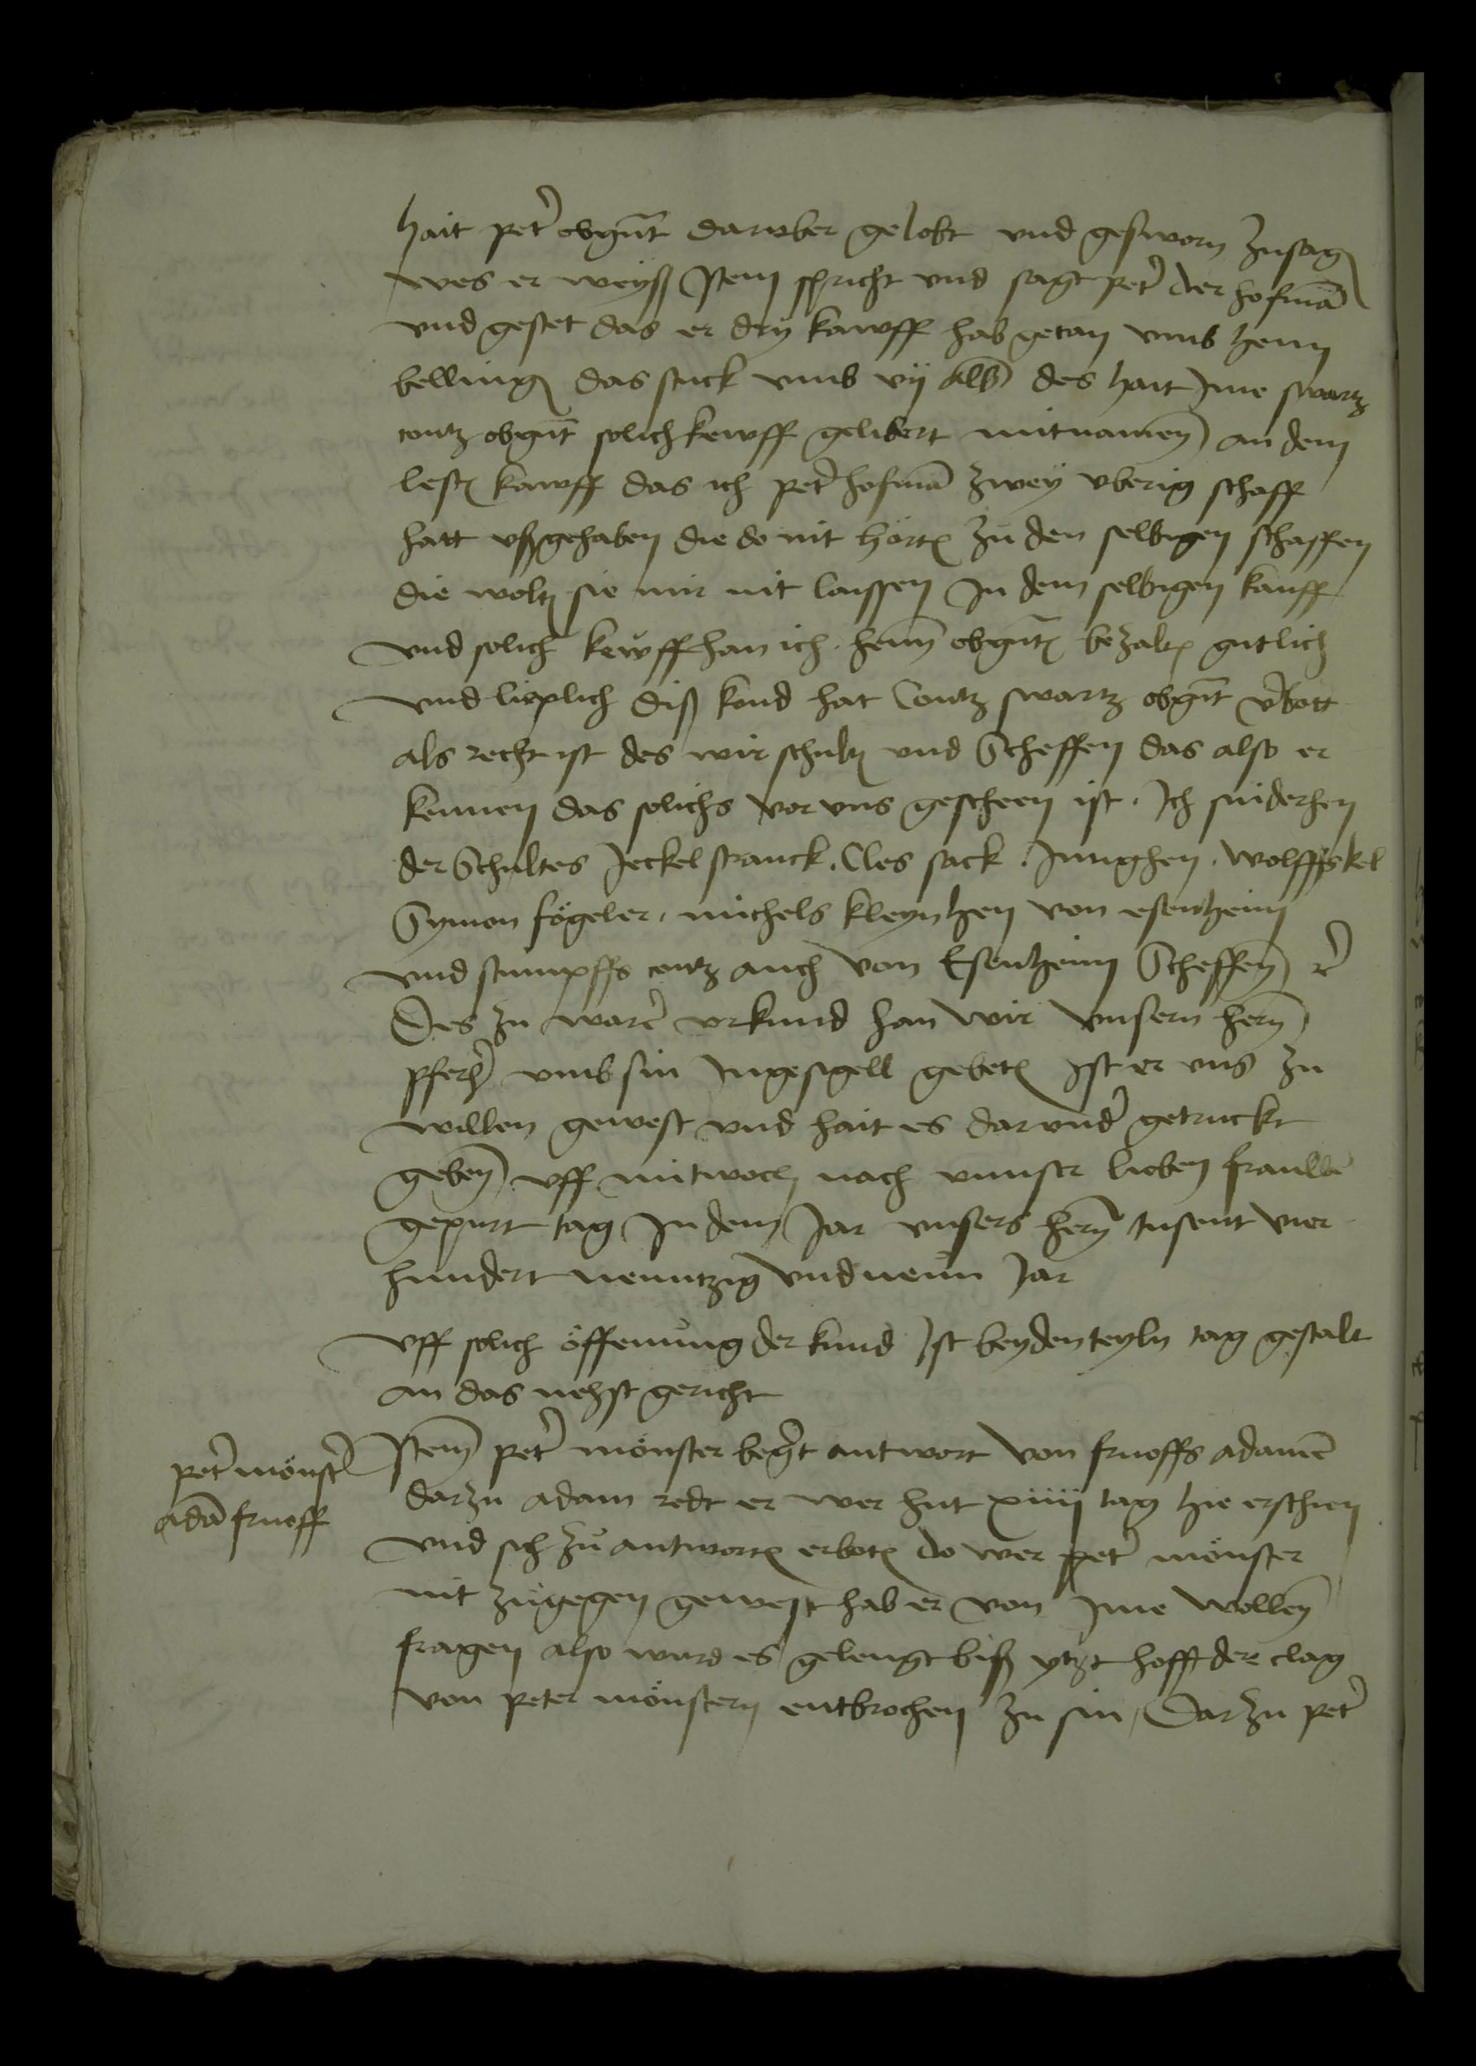 hait peter obgnt daruber gelobt vnd gesworn zusag
wes er weyß Item spricht vnd sagt peter der hofman
vnd gestet das er dry kauwff hab getan vmb henn
bellinger das stuck vmb vij alb des hait Ime swartz
contz obgnt solich kewff gelibert mitnamen an dem
lesten kauwff das ich peter hofman zwey vberig schaff
hatt vßgehaben die do nit hörten zu den selbigen schaffen
die wolten sie mir nit laissen In dem selbigen kauff
vnd solich kewff han ich henn obgnten bezalt gutlich
vnd lieplich diß kond hat Contz swartz obgnt verbott
als recht ist des wir schulteß vnd Scheffen das also er
kennen das solichs vor vns gescheen ist. Ich sniderhen
der Schultes Jeckel stranck. Cles sack. Junghen. Wolffskel
Symon fögeler. michels kleynhen von esenheim
vnd stumpffs contz auch von Esenheim Scheffen
Des zu warer vrkund han wir vnsern hern
pferher vmb sin Ingesigell gebeten Ist er vns zu
willen gewest vnd hait es darunder getruckt
geben vff mitwoch nach vnnser lieben frauwen
gepurt tag In dem Jar vnsers hern tusent vier
hundert nenntzig vnd neun Jar
vff solich öffenung der kund Ist beyden teyln tag gestalt
an das nehst gericht
peter mönster
adam fruoff
Item peter mönster begert antwort von fruoffs adamen
darzu adam redt er wer hut xiiij tag hie erschien
vnd sich zu antworten erboten do wer peter mönster
nit zugegen gewest hab er von Ime wollen
fragen also ward es gelengt biß ytzt hofft der clag
von peter mönstern entbrochen zu sin, Darzu peter